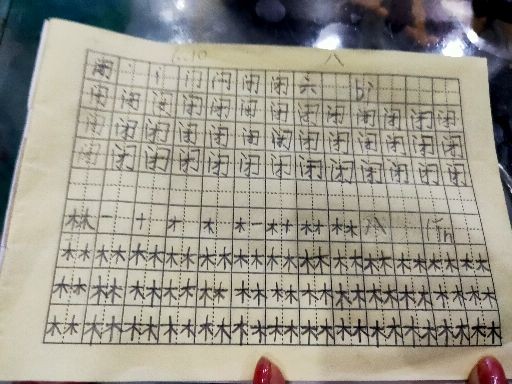 八
闭 丶 门 闩 闭 闭 六 bì
闭 闭 闭 闭 闭 闭 闭 闭 闭 闭 闭 闭 闭
闭 闭 闭 闭 闭 闭 闭 闭 闭 闭 闭 闭 闭
闭 闭 闭 闭 闭 闭 闭 闭 闭 闭 闭 闭 闭
林 一 十 才 木 木一 木十 木才 林 八 lín
林 林 林 林 林 林 林 林 林 林 林 林 林
林 林 林 林 林 林 林 林 林 林 林 林 林
林 林 林 林 林 林 林 林 林 林 林 林 林